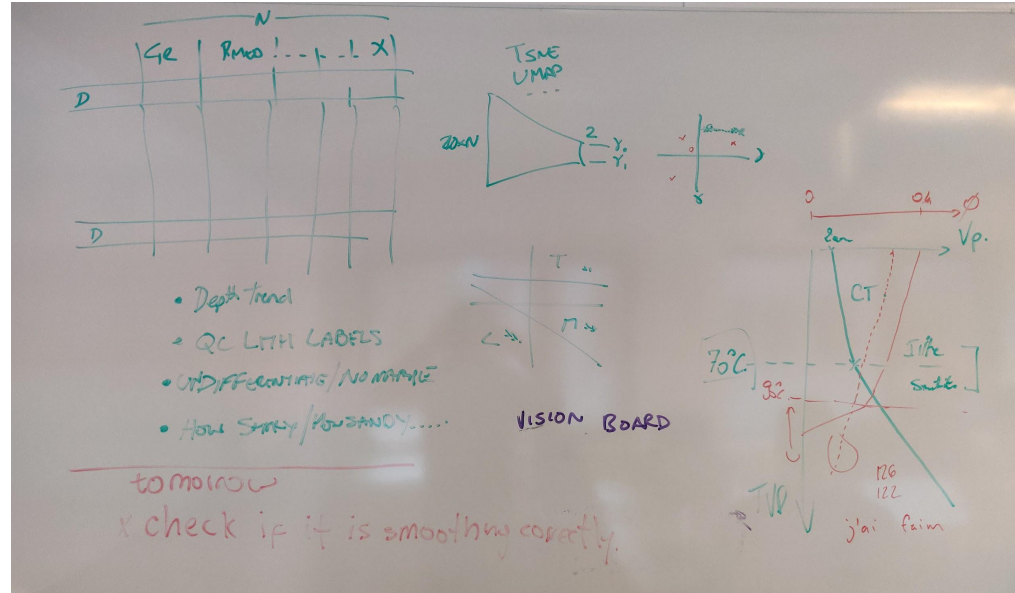 N
GR RMED X
D
D
• Depth Trend
• QC LITH LABELS
• HOW SHALY/HOW SANDY.....
tomorrow
x check if it is smoothing corectly.
TSNE
UMAP
...
2
Y₀
Y₁
T
M
VISION BOARD
0 0.4 Ø
Vp.
CT
70°C
90°C
Illite
Smectite
126
122
TVD
j'ai faim